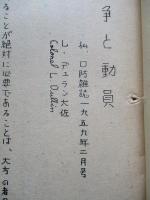 争と動員
仏、口防雑誌一九五九年二月号
L・デュラン大佐
Colonel L Dullin
ることが絶対に必要であることは、大方の者の